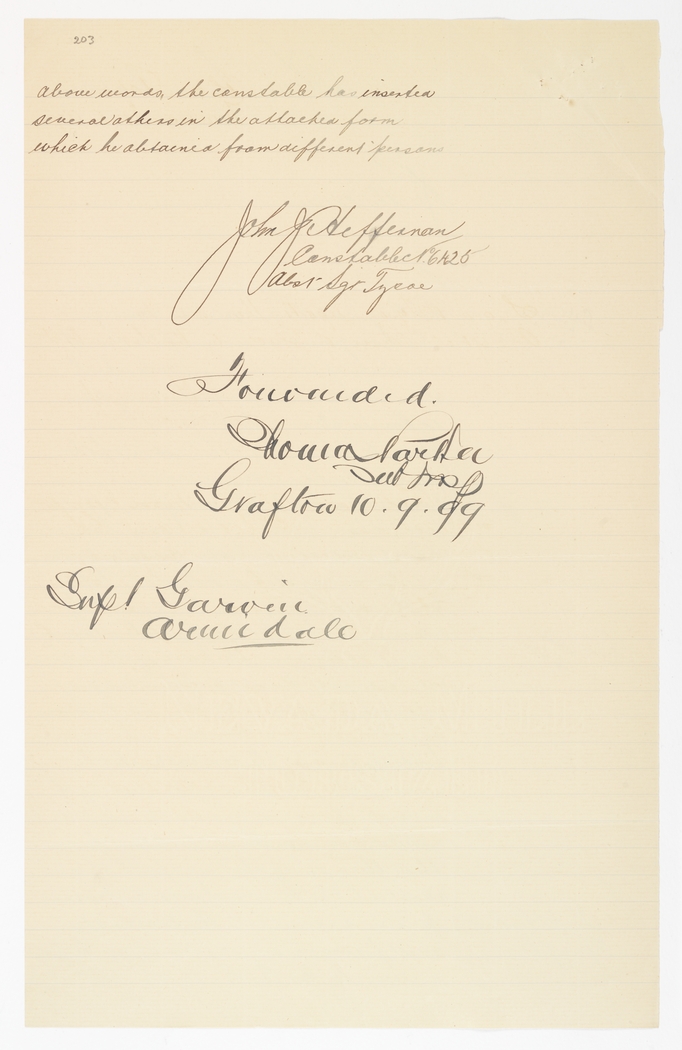 203
above words, the constable has inserted
several others in the attached form
which he obtained from different persons
John J. Heffernan
Constable No 6425
Abst Sgr Tycoe
Forwarded.
Thomas Parker
Sub Insp
Grafton 10.9.99
Supt Garvin
Armidale